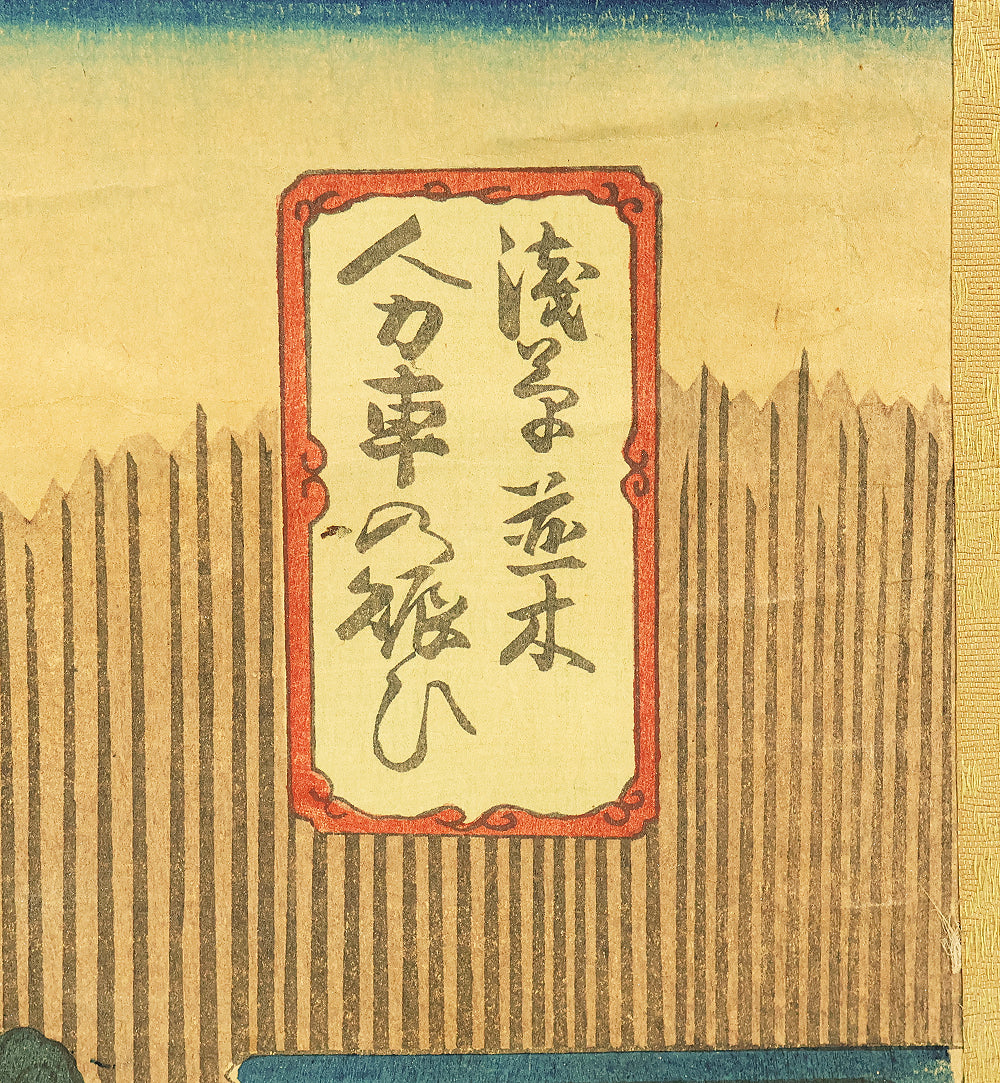 淺草並木
人力車の賑ひ